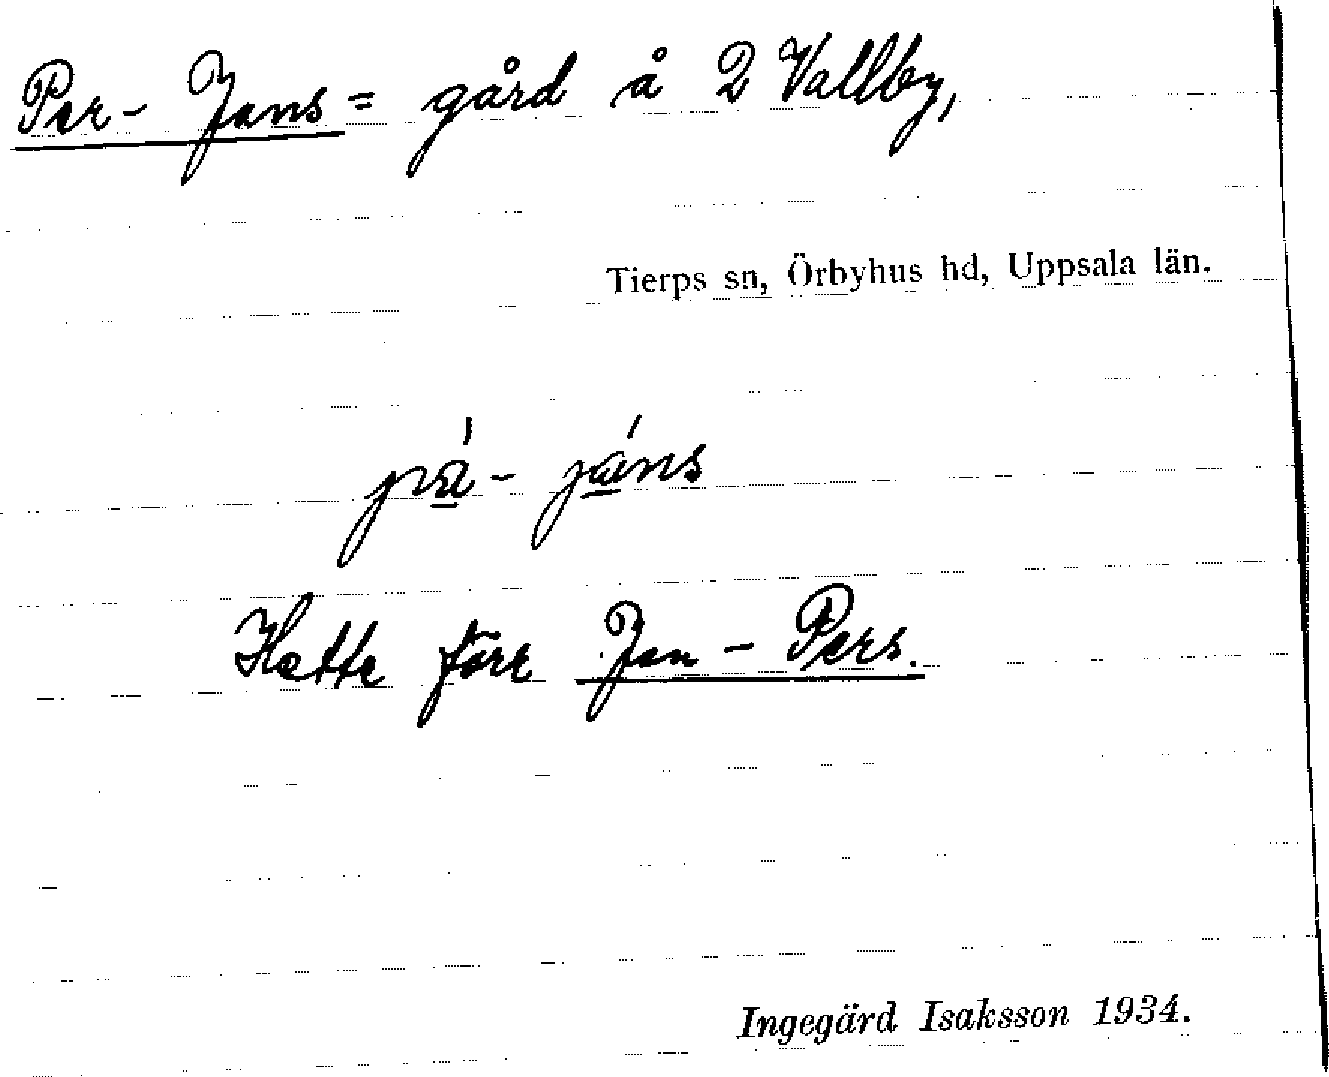 Per- Jans = gård å 2 Vallby,
Tierps sn, Örbyhus hd, Uppsala län.
jáns
Hette förr Jan - Pers.
Ingegärd Isaksson 1934.